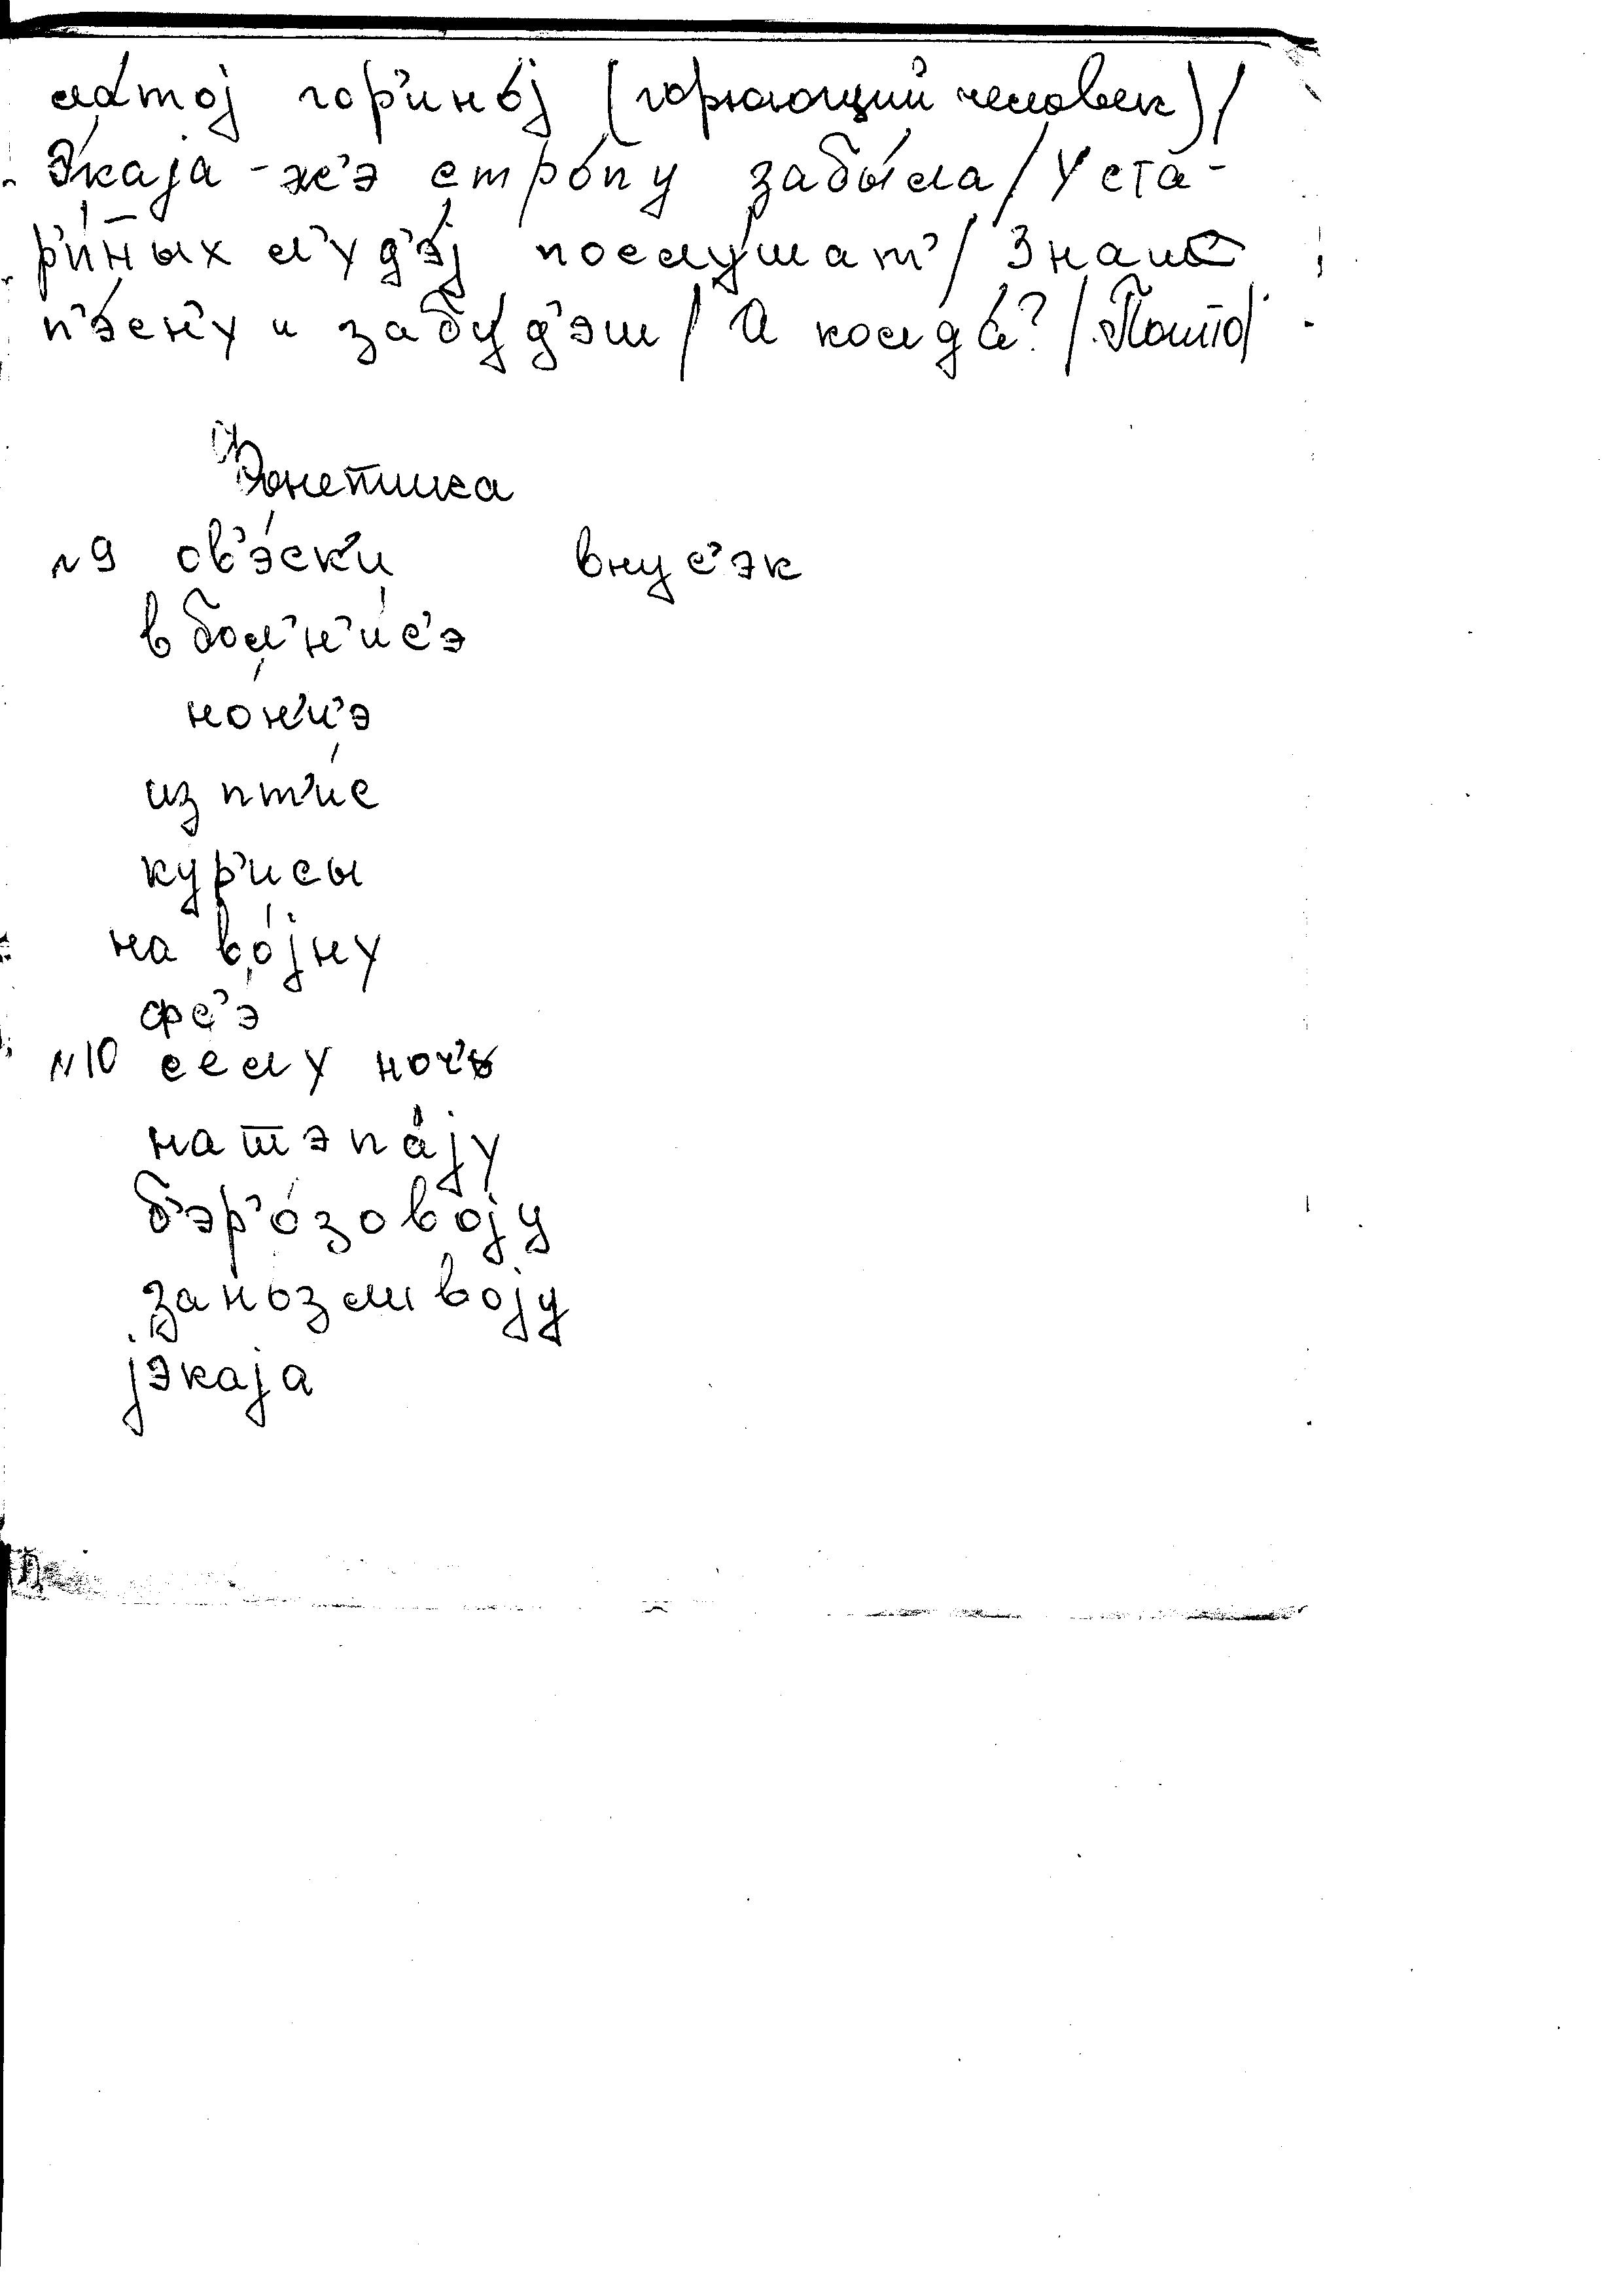 ла́тој гор'ино́ј (горюющий человек)/
Э́каја - ж'э стро́пу забы́ла / У ста-
р'и́н̄ых л'уд'э́ј послу́шат' / Знаш
п'э́сн'у и забу́д'эш / А колда́? / Пошто́/
Фонетика
№9 ов'э́ск'и внус'эк
в бол'н'и́с'э
но́н'и'э
из пт'и́с
кур'исы
на во́јну
фс'э́
№10 селу ноч'
натэпа́ју
б'эр'о́зовоју
занозливоју
јэкаја